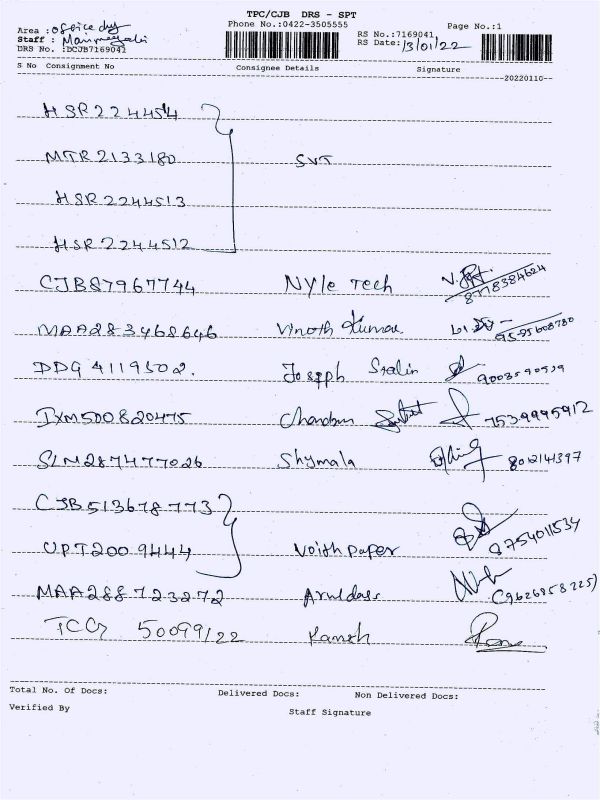 TPC/CJB DRS - SPT
Phone No.:0422-3505555 Page No.:1
Area : office dly
Staff :
DRS No. :DCJB7169041
RS No.:7169041
RS Date: 13/01/22
S No Consignment No Consignee Details Signature
20220110
HSR2244514
MTR2133180 SVT
HSR2244513
HSR2244512
CJB87967744 Nyle Tech 8778384624
MAA283468646 Vinoth Kumar 9595608780
DDG 4119502. Joseph Stalin
IXM500820475 Chandran 7539995912
SLM287477026 Shymala 802141397
CJB513678773
UPT2009444 Voith paper 8754011534
MAA288723272 Aruldass (9626858225)
TCG 50099/22 Ramesh
Total No. Of Docs: Delivered Docs: Non Delivered Docs:
Verified By Staff Signature